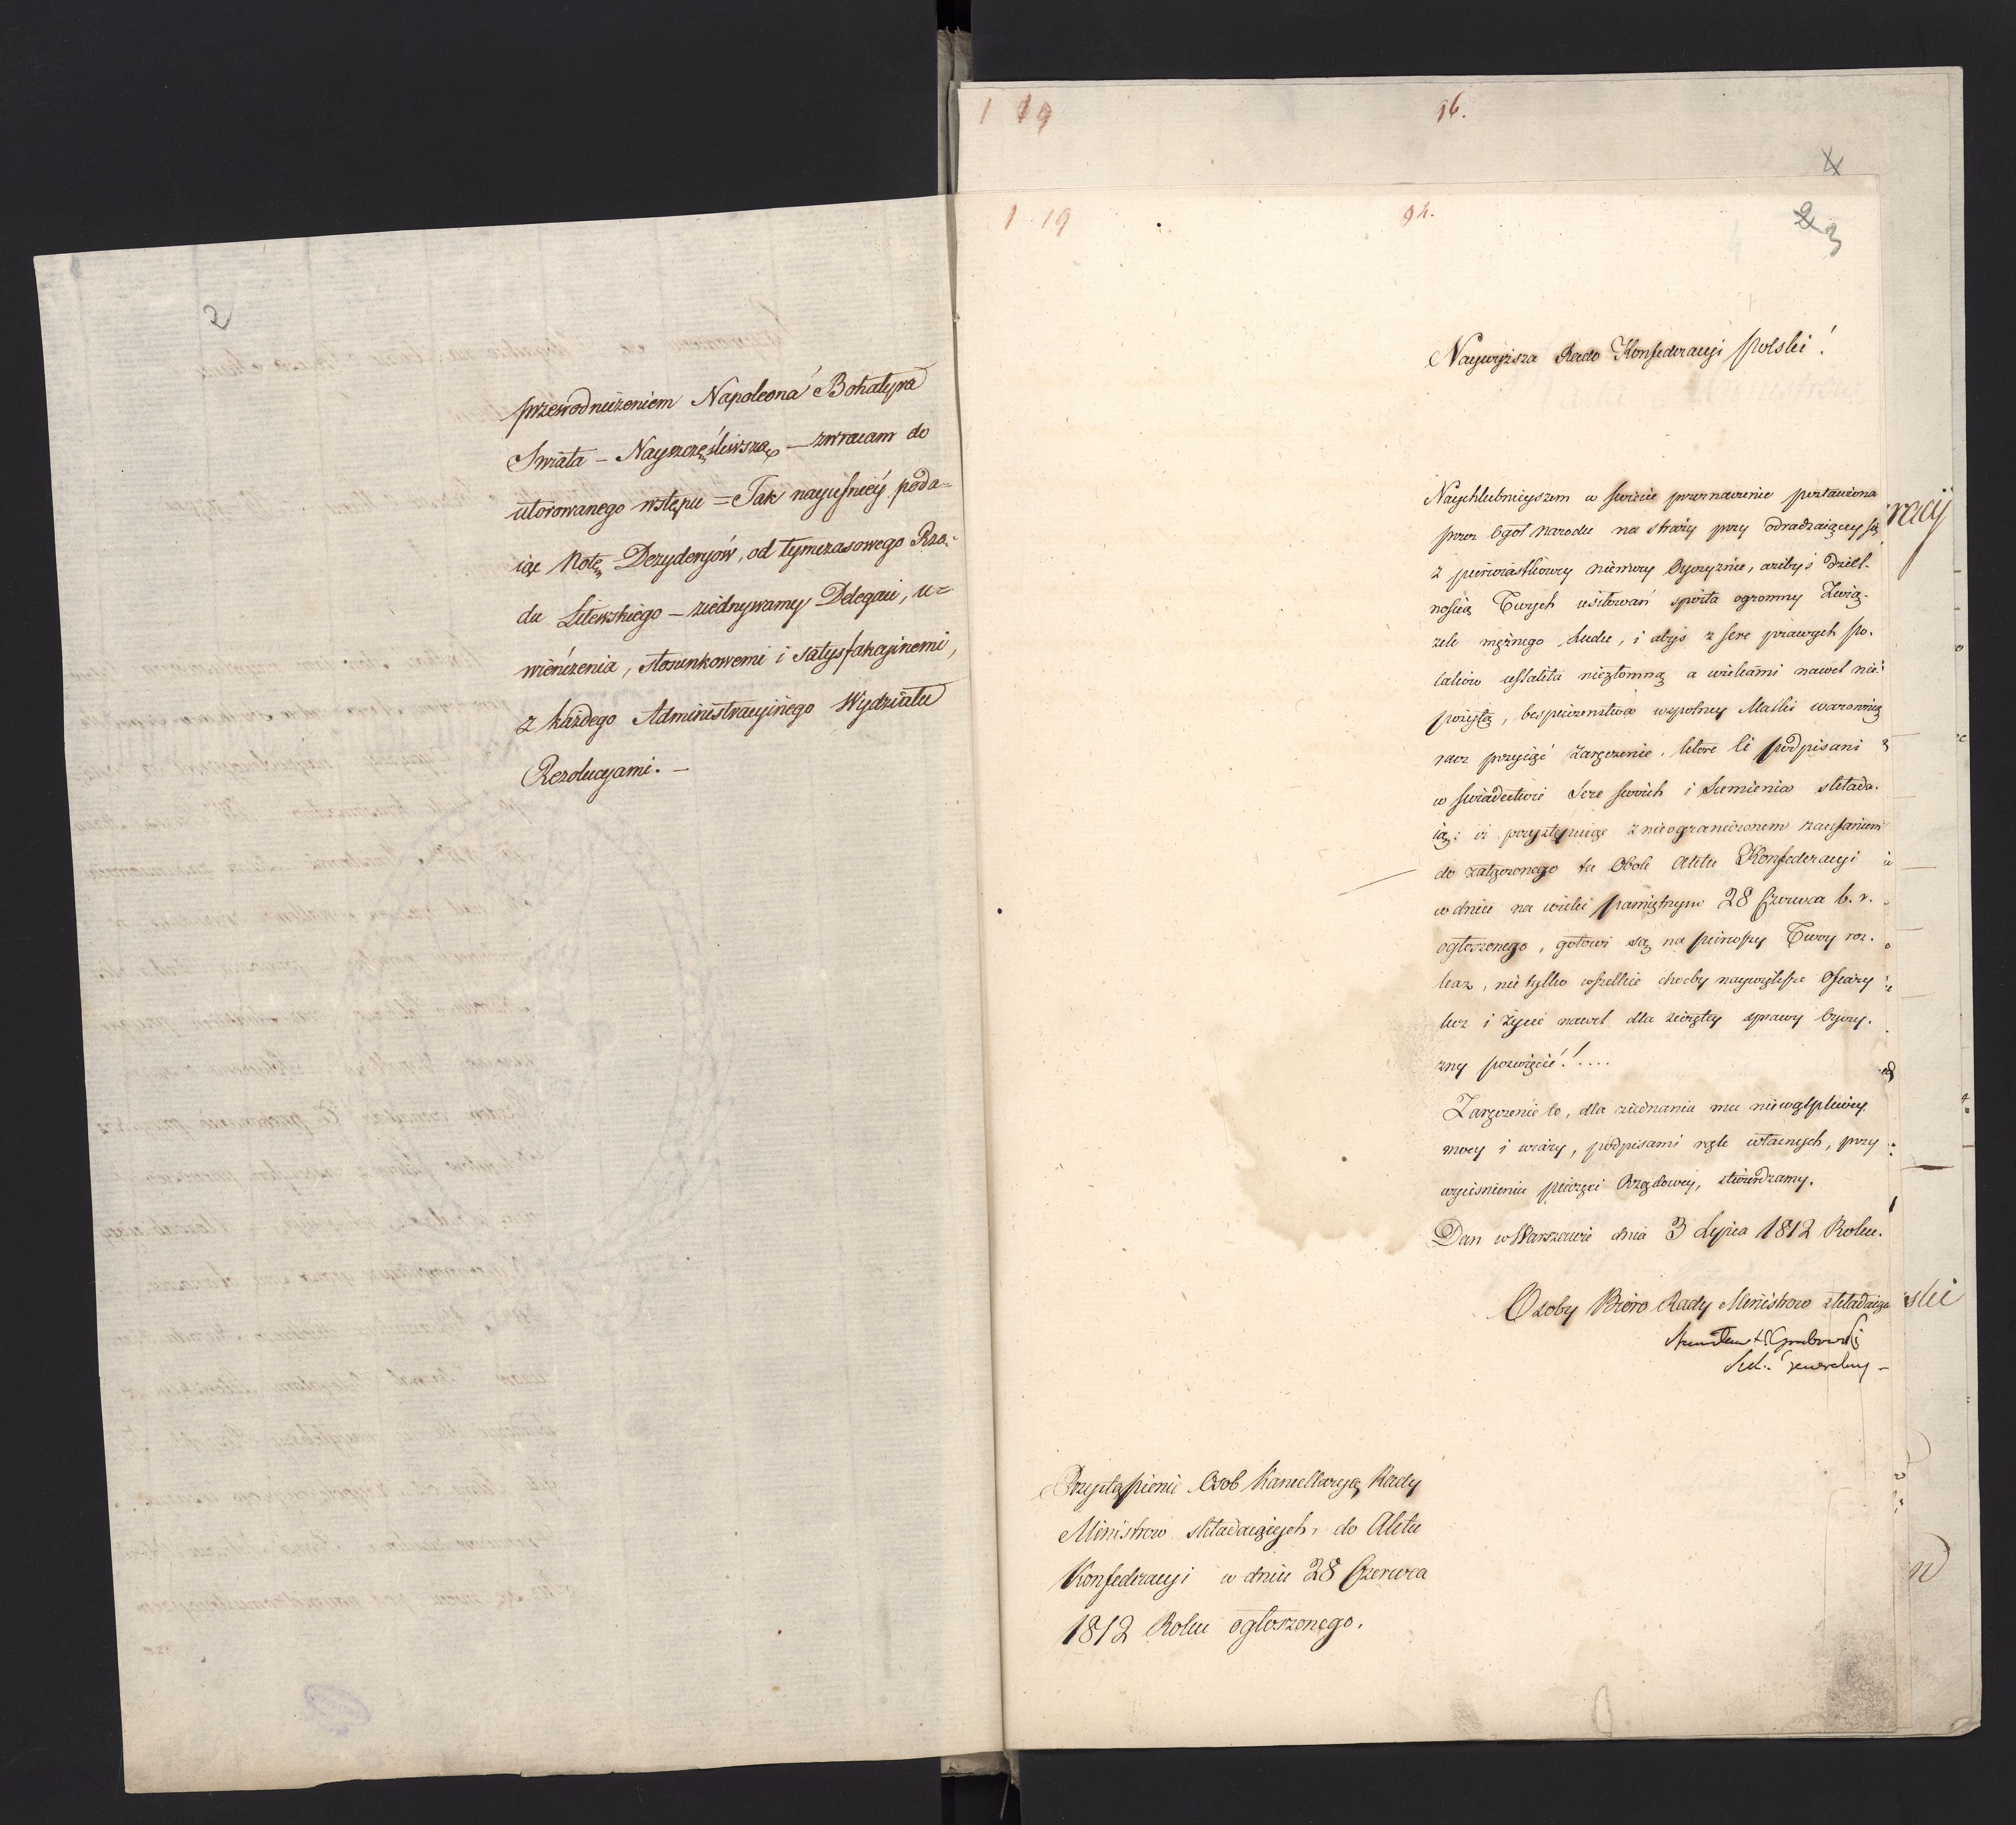 2
przewodniczeniem Napoleona Bohatyra
Swiata – Nayszczęśliwszą – zwracam do
utorowanego wstępu = Tak nayufniey poda=
iąc Notę Dezyderyów, od tymczasowego Rzą=
du Litewskiego – ziednywamy Delegaci, u=
wieńczenia, stosunkowemi i satysfakcyinemi,
z każdego Administracyinego Wydziału
Rezolucyami. –
1 19
96.
4
1 19
94.
2 3
Naywyższa Rado Konfederacyi Polski!
Naychlubnieyszem w świecie przeznaczenie postawiona
przez Ogół Narodu na straży przy odradzaiącey się
z pierwiastkowey niemocy Oyczyznie, ażebyś dziel-
nością Twych usiłowań spoiła ogromny Zwią-
zek mężnego Ludu, i abyś z serc prawych Po-
laków ustaliła niezłomną a wiekami nawet nie-
pożytą, bespieczenstwa wspolney Matki warownią
racz przyiąć Zaręczenie, które ci podpisani
w świadectwie Serc swoich i Sumienia składa-
ią: iż przystępuiąc z nieograniczonem zaufaniem
do załączonego tu Obok Aktu Konfederacyi
w dniu na wieki pamiętnym 28 Czerwca b. r.
ogłoszonego, gotowi są na pierwszy Twoy roz-
kaz, nie tylko wszelkie choćby naywiększe Ofiary
lecz i życie nawet dla świętey sprawy Oyczy-
zny poświęcić!....
Zaręczenie to, dla ziednania mu niewątpliwey
mocy i wiary, podpisami rąk własnych, przy
wyciśnieniu pieczęci Rządowey, stwierdzamy.
Dan w Warszawie dnia 3 Lipca 1812 Roku.
Osoby Bióro Rady Ministrow składaiące
Stanisław Grabowski
Sek. Jeneralny –
Przystąpienie Osob Kancellaryą Rady
Ministrow składaiących, do Aktu
Konfederacyi w dniu 28 Czerwca
1812 Roku ogłoszonego.
racij